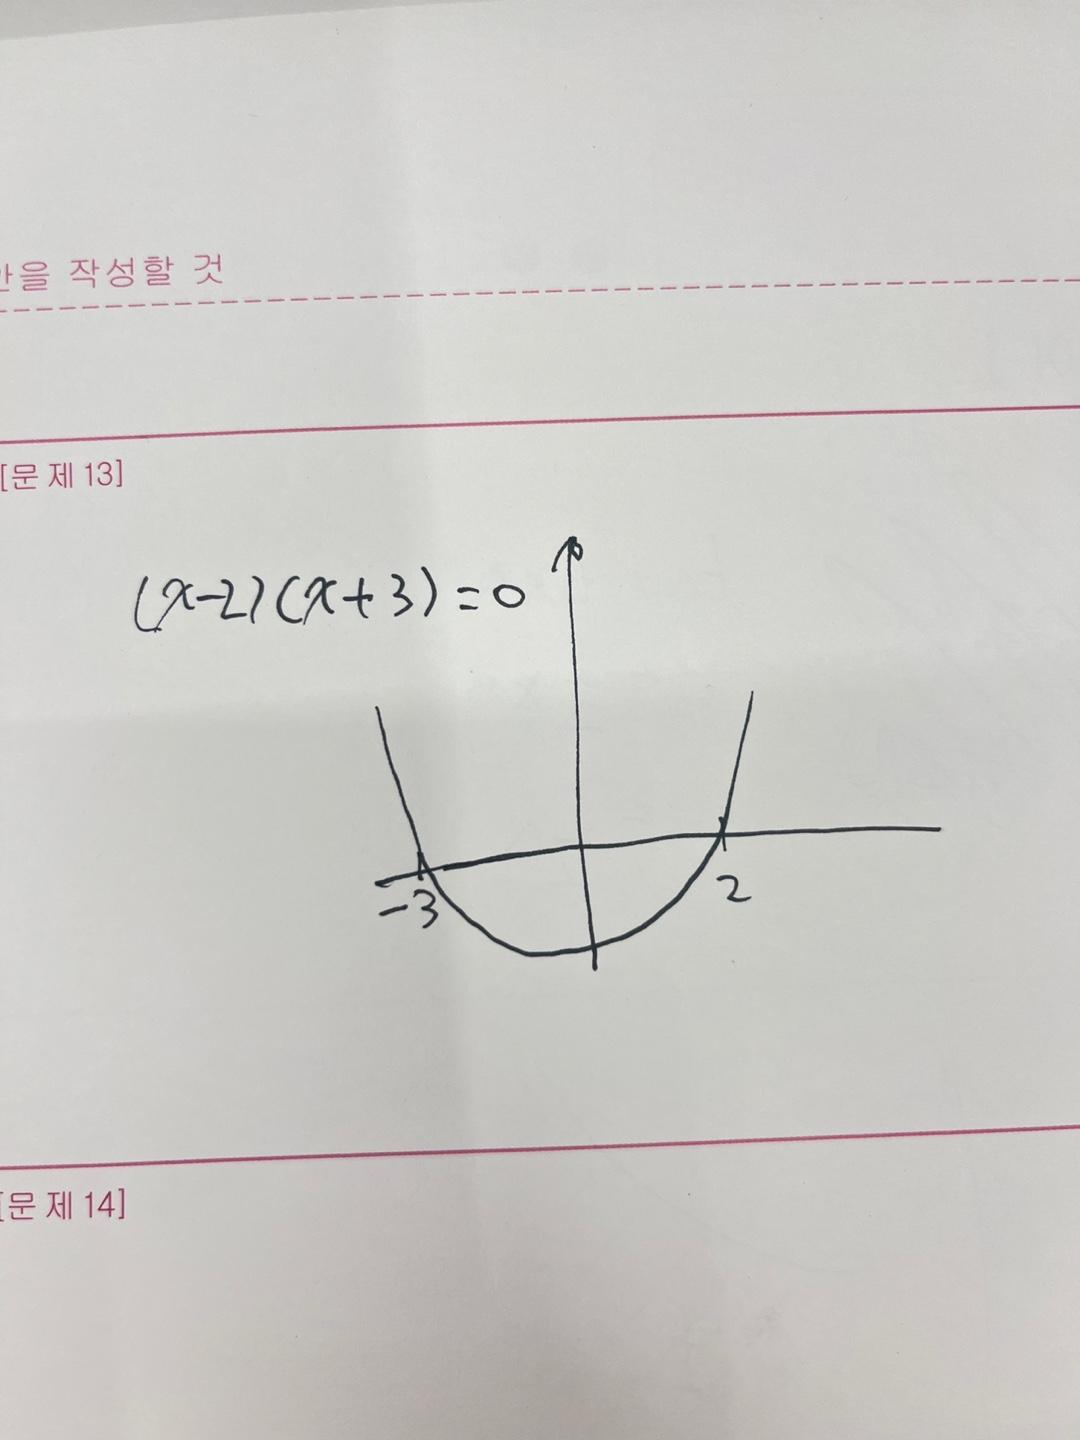 을 작성할 것
[문제 13]
(x-2)(x+3)=0
-3
2
[문제 14]